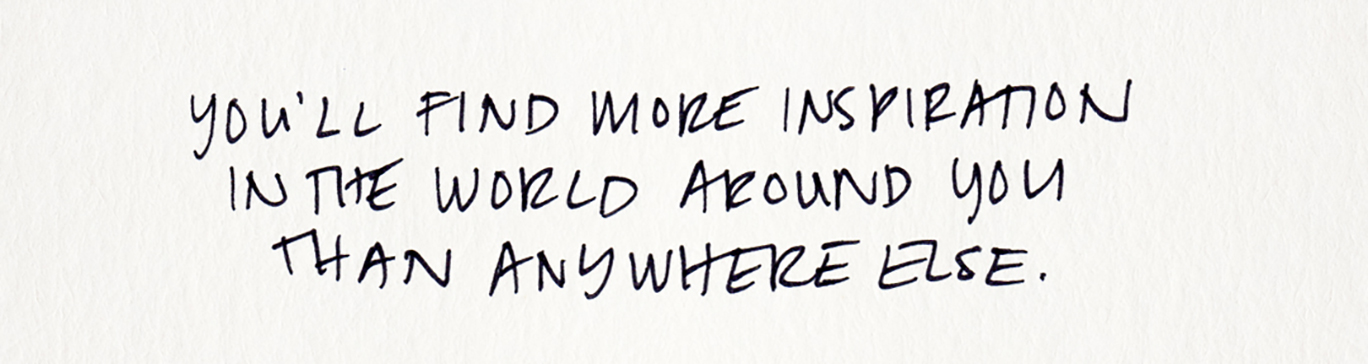 YOU'LL FIND MORE INSPIRATION
IN THE WORLD AROUND YOU
THAN ANYWHERE ELSE.